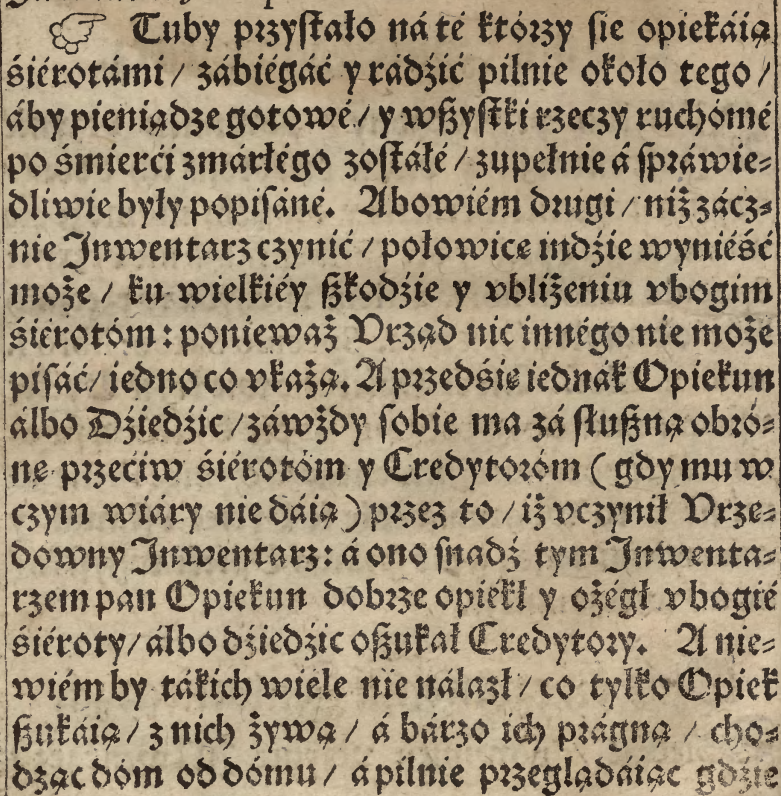 ☞ Tuby przystało ná té którzy sie opiekáią
śiérotámi / zábiégáć y rádźić pilnie około tego /
áby pieniądze gotowé / y wszystki rzeczy ruchómé
po śmierći zmárłégo zostáłé / zupełnie á spráwie⸗
dliwie były popisáné. Abowiém drugi / niż zácz⸗
nie Inwentarz czynić / połowicę indźie wynieść
może / ku wielkiéy szkodźie y vbliżeniu vbogim
śiérotóm : ponieważ Vrząd nic innégo nie może
pisáć / iedno co vkażą. A przedśię iednák Opiekun
álbo Dźiedźic / záwżdy sobie ma zá słuszną obró⸗
nę przećiw śiérotóm y Credytoróm ( gdy mu w
czym wiáry nie dáią ) przez to / iż vczynił Vrzę⸗
downy Inwentarz : á ono snadź tym Inwenta⸗
rzem pan Opiekun dobrze opiékł y ożégł vbogié
śiéroty / álbo dźiedźic oszukał Credytory. A nie⸗
wiém by tákich wiele nie nálazł / co tylko Opiek
szukáią / z nich żywą / á bárzo ich prágną / cho⸗
dząc dóm od dómu / á pilnie przeglądáiąc gdźie